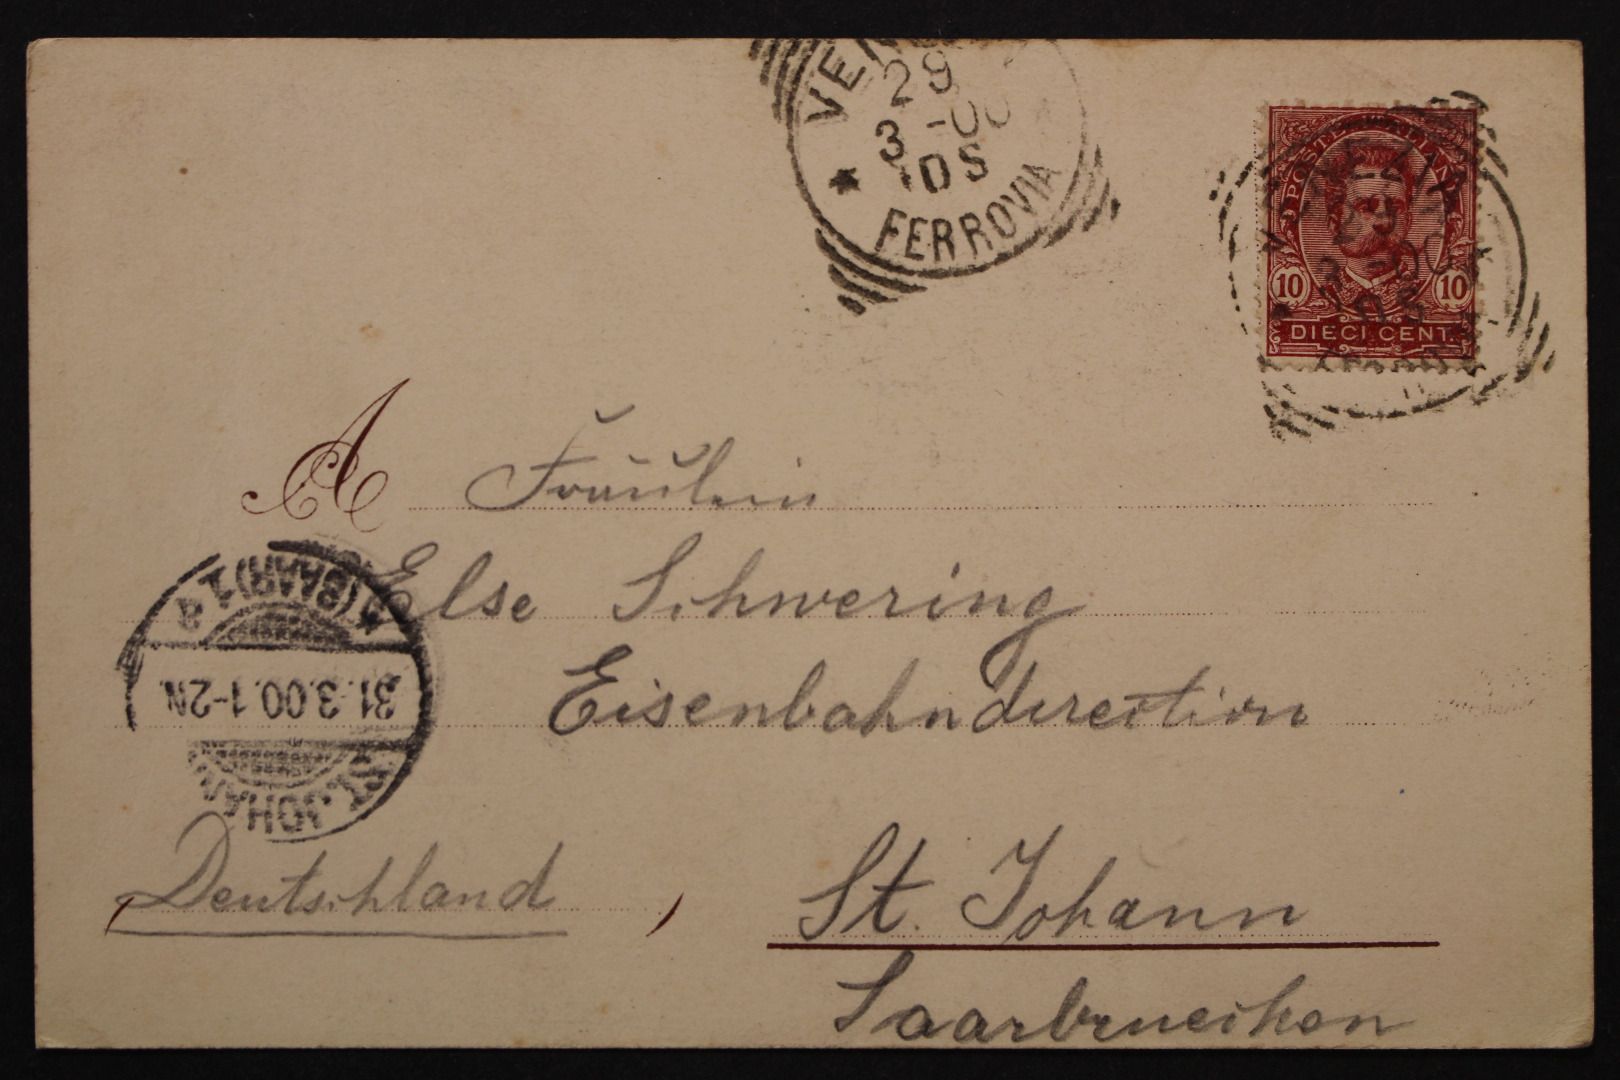 29
3 -00
10 S
FERROVIA
POSTE ITALIANE
VENEZIA
29
3 -00
10 S
10 10
DIECI CENT.
A Fräulein
Else Schwering
Eisenbahndirection
Deutschland, St. Johann
Saarbruecken
ST. JOHANN (SAAR) 1 a
31.3.00.1-2N.